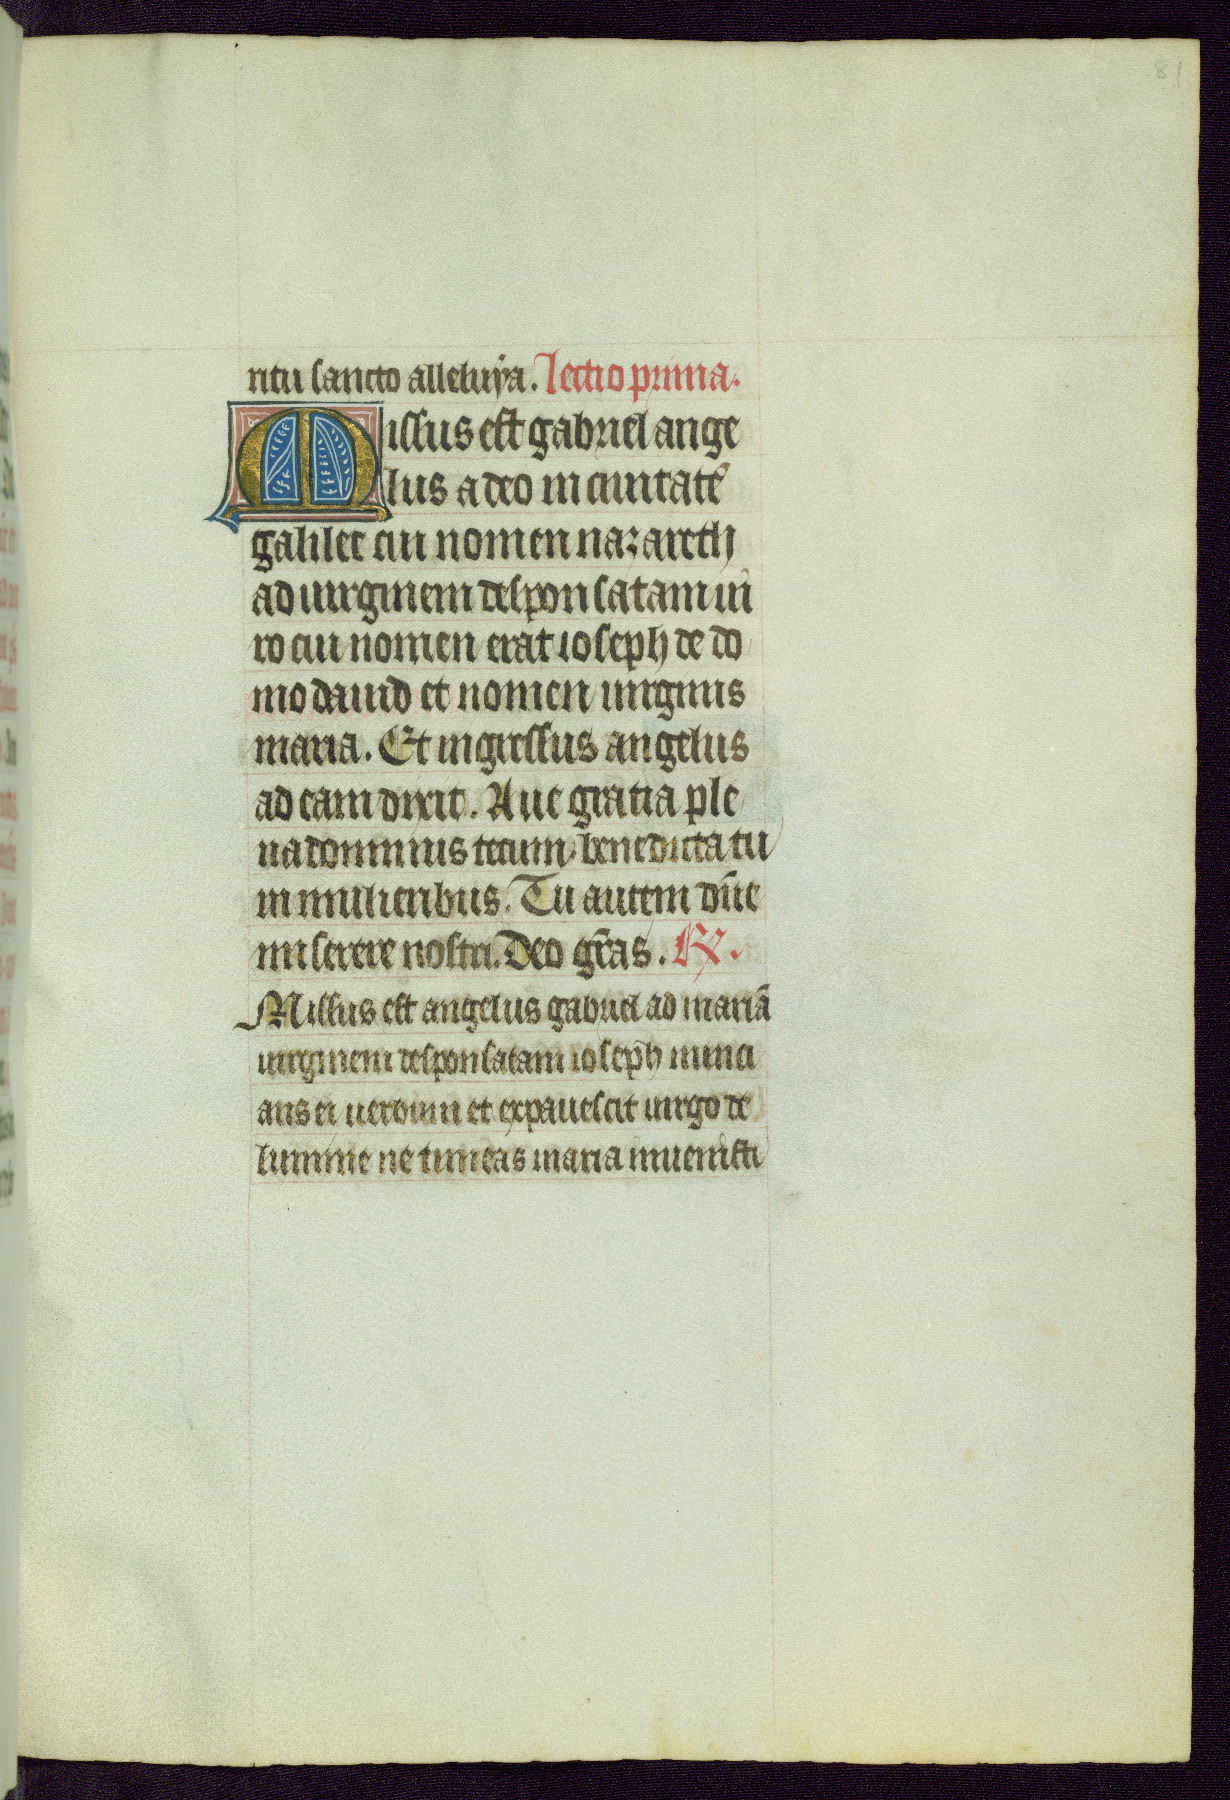 81
ritu sancto alleluya. lectio prima.
Missus est gabriel ange
lus a deo in ciuitatē
galilee cui nomen nazareth
ad uirginem desponsatam ui
ro cui nomen erat ioseph de do
mo dauid et nomen uirginis
maria. Et ingressus angelus
ad eam dixit. Aue gratia ple
na dominus tecum benedicta tu
in mulieribus. Tu autem dn̄e
miserere nostri. Deo grās. ℟.
Missus est angelus gabriel ad mariā
uirginem desponsatam ioseph nunci
ans ei uerbum et expauescit uirgo de
lumine ne timeas maria inuenisti